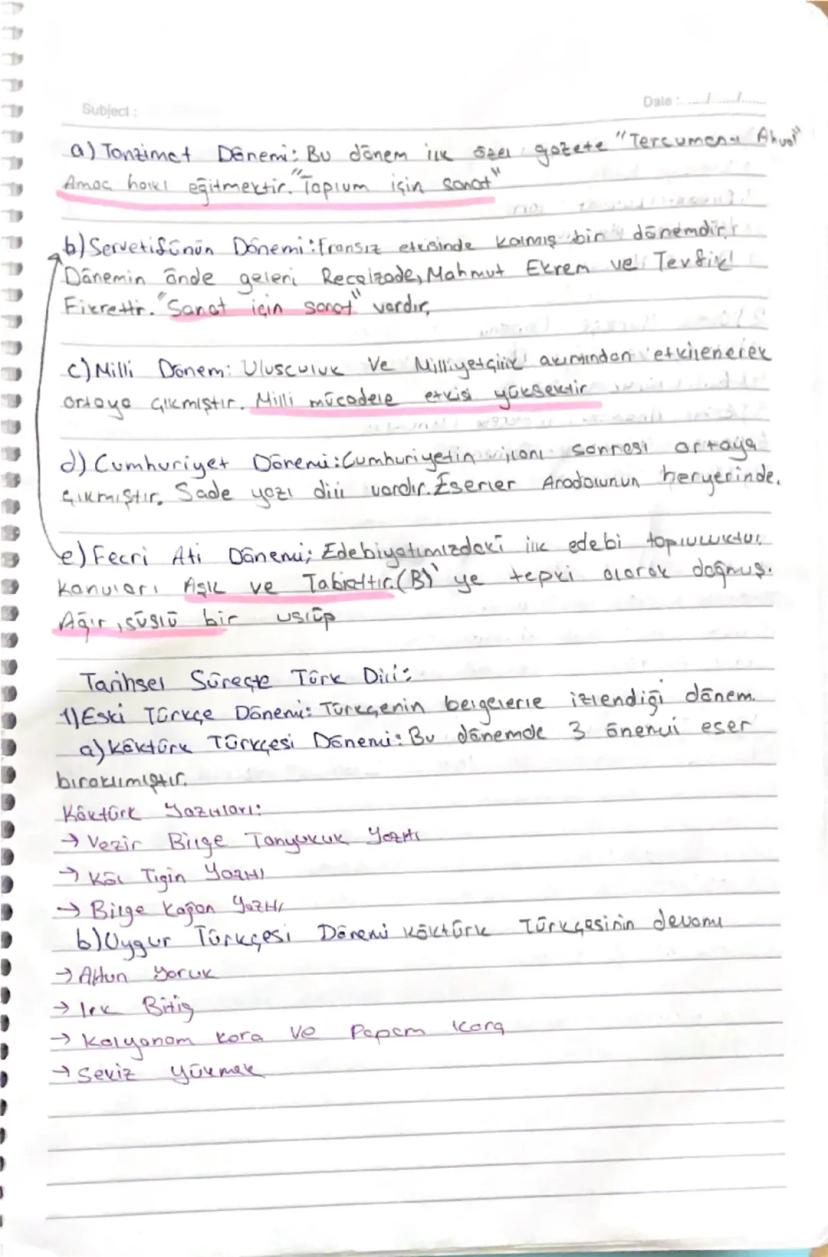 Subject :
Date : ..../..../....
a) Tanzimat Dönemi: Bu dönem ilk özel gazete "Tercuman-ı Ahval"
Amaç halkı eğitmektir. "Toplum için sanat"
b) Servetifünün Dönemi: Fransız etkisinde kalmış bir dönemdir.
Dönemin önde geleni Recaizade, Mahmut Ekrem ve Tevfik
Fikrettir. "Sanat için sanat" vardır,
c) Milli Dönem: Ulusculuk ve Milliyetçilik akımından etkilenerek
ortaya çıkmıştır. Milli mücadele etkisi yüksektir
d) Cumhuriyet Dönemi: Cumhuriyetin ilanı sonrası ortaya
çıkmıştır. Sade yazı dili vardır. Eserler Anadolunun heryerinde.
e) Fecri Ati Dönemi; Edebiyatımızdaki ilk edebi topluluktur.
konuları Aşk ve Tabiattır. (B)'ye tepki olarak doğmuş.
Ağır, süslü bir uslüp
Tarihsel Süreçte Türk Dili:
1) Eski Türkçe Dönemi: Türkçenin belgelerle izlendiği dönem.
a) Köktürk Türkçesi Dönemi: Bu dönemde 3 önemli eser
bırakılmıştır.
Köktürk Yazıtları:
→ Vezir Bilge Tonyukuk Yazıtı
→ Köl Tigin Yazıtı
→ Bilge Kağan Yazıtı
b) Uygur Türkçesi Dönemi Köktürk Türkçesinin devamı
→ Altun Yaruk
→ Irk Bitig
→ Kalyanam kara ve Papam kara
→ Sekiz Yükmek